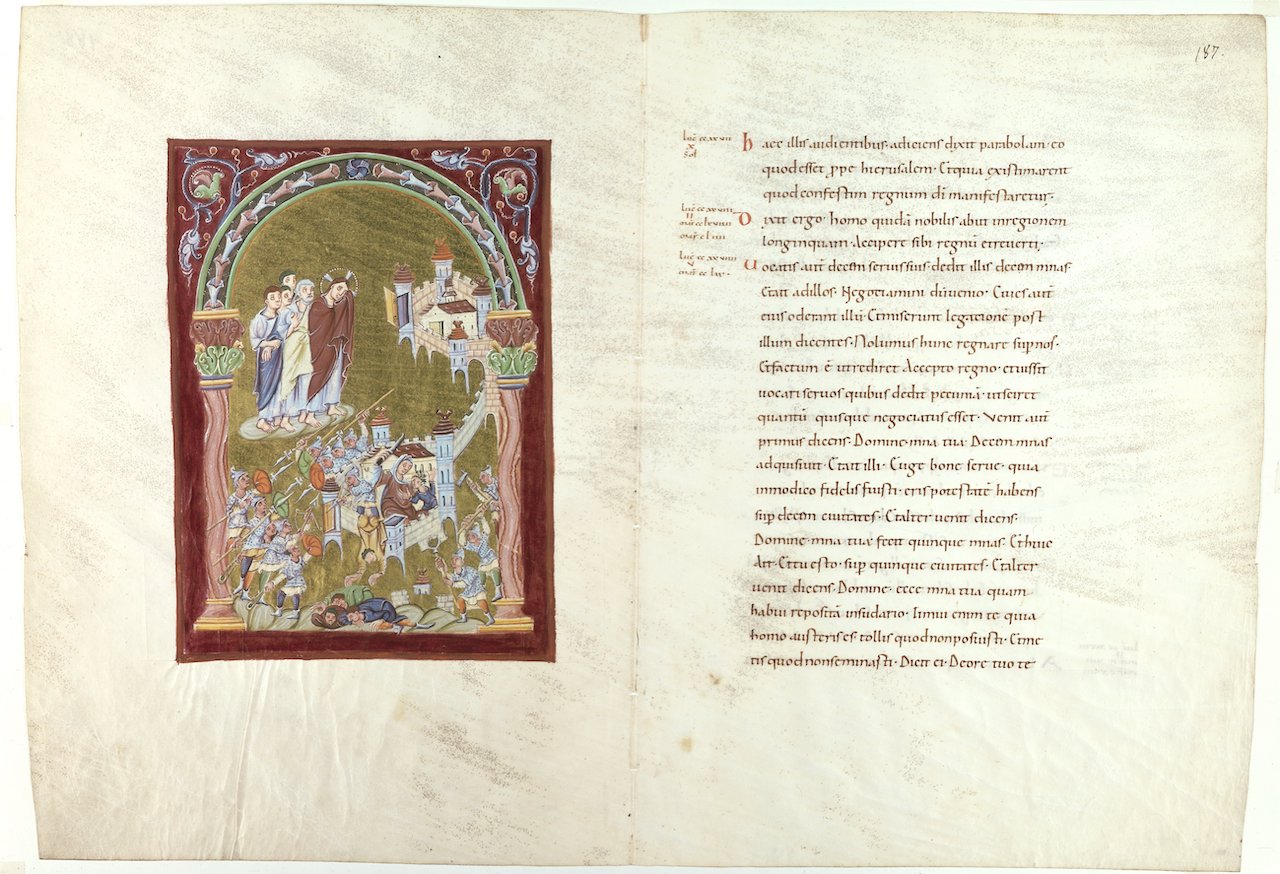 187.
Haec illis audientibus· adiciens dixit parabolam· eo
quod esset ꝓpe hierusalem· Et quia existimarent
quod confestim regnum dī manifestaretur·
Dixit ergo· homo quidā nobilis abiit in regionem
longinquam· Accipere sibi regnū et reverti·
Uocatis aut̄ decem seruis suis· dedit illis decem mnas
Et ait ad illos· Negociamini dū uenio· Ciues aut̄
eius oderant illū· Et miserunt legationē post
illum dicentes· Nolumus hunc regnare sup nos·
Et factum ē ut rediret Accepto regno· et iussit
uocari seruos quibus dedit pecuniā· ut sciret
quantū quisque negociatus esset· Venit aut̄
primus dicens· Domine· mna tua· Decem mnas
adquisiuit· Et ait illi· Euge bone serue· quia
in modico fidelis fuisti· eris potestatē habens
sup decem ciuitates· Et alter uenit dicens·
Domine· mna tua· fecit quinque mnas· Et huic
Ait· Et tu esto· sup quinque ciuitates· Et alter
uenit dicens· Domine· ecce mna tua quam
habui repositā in sudario· timui enim te quia
homo austeris es tollis quod non posuisti· Et me
tis quod non seminasti· Dicit ei· De ore tuo te